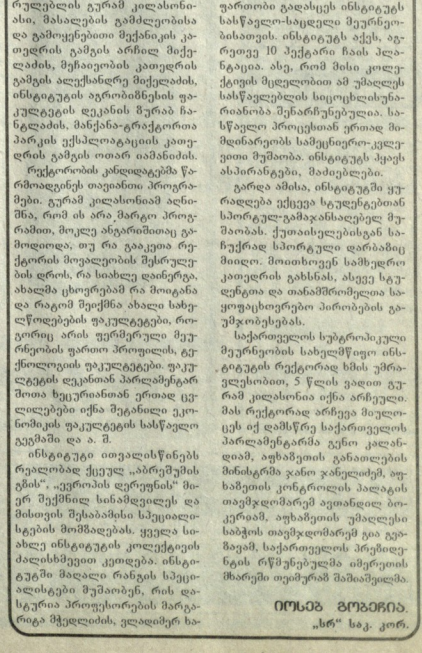 რულებლის გურამ კილასონი-
ასი, მასალების გამძლეობისა
და გამოყენებითი მექანიკის კა-
თედრის გამგის არჩილ მიქე-
ლაძის, მეჩაიეობის კათედრის
გამგის ალექსანდრე მიქელაძის,
ინსტიტუტის აგრობიზნესის ფა-
კულტეტის დეკანის ზურაბ ჩა-
ნტლაძის, მანქანა-ტრაქტორთა
პარკის ექსპლოატაციის კათე-
დრის გამგის ოთარ იამანიძის.
რექტორობის კანდიდატებმა წა-
რმოადგინეს თავიანთი პროგრა-
მები. გურამ კილასონიამ აღნი-
შნა, რომ ის არა მარტო პროგ-
რამით, მოკლე ანგარიშითაც გა-
მოდიოდა, თუ რა გააკეთა რე-
ქტორის მოვალეობის შესრულე-
ბის დროს, რა სიახლე დაინერგა,
ახალმა ცხოვრებამ რა მოიტანა
და რატომ შეიქმნა ახალი სახე-
ლწოდებების ფაკულტეტები, რო-
გორიც არის ფერმერული მეუ-
რნეობის ფართო პროფილის, ტე-
ქნოლოგიის ფაკულტეტები. ფაკუ-
ლტეტის დეკანთან პარლამენტარ
შოთა ხეცურიანთან ერთად ცვ-
ლილებები იქნა შეტანილი ეკო-
ნომიკის ფაკულტეტის სასწავლო
გეგმაში და ა. შ.
ინსტიტუტი ითვალისწინებს
რეალობად ქცეულ „აბრეშუმის
გზის“, „ევროპის დერეფნის“ მი-
ერ შექმნილ სინამდვილეს და
მისთვის შესაბამისი სპეციალი-
სტების მომზადებას. ყველა სი-
ახლე ინსტიტუტის კოლექტივის
ძალისხმევით კეთდება. ინსტი-
ტუტში მაღალი რანგის სპეცი-
ალისტები მუშაობენ, რის და-
სტურია პროფესორების მარგა-
რიტა მჭედლიძის, ვლადიმერ ხა-
ფართობი გადასცეს ინსტიტუტს
სასწავლო-საცდელი მეურნეო-
ბისათვის. ინსტიტუტს აქვს, აგ-
რეთვე 10 ჰექტარი ჩაის პლა-
ნტაცია. ასე, რომ მისი კოლე-
ქტივის მცდელობით ამ უმაღლეს
სასწავლებლის სიცოცხლისუნა-
რიანობა შენარჩუნებულია. სა-
სწავლო პროცესთან ერთად მი-
მდინარეობს სამეცნიერო-კვლე-
ვითი მუშაობა. ინსტიტუტს ჰყავს
ასპირანტები, მაძიებლები.
გარდა ამისა, ინსტიტუტში ყუ-
რადღება ექცევა სტუდენტებთან
სპორტულ-გამაჯანსაღებელ მუ-
შაობას. ქუთაისელებისგან სა-
ჩუქრად სპორტული დარბაზიც
მიიღო. მოითხოვენ სამხედრო
კათედრის გახსნას, ასევე სტუ-
დენტთა და თანამშრომელთა სა-
ყოფაცხოვრებო პირობების გა-
უმჯობესებას.
საქართველოს სუბტროპიკული
მეურნეობის სახელმწიფო ინს-
ტიტუტის რექტორად ხმის უმრა-
ვლესობით, 5 წლის ვადით გუ-
რამ კილასონია იქნა არჩეული.
მას რექტორად არჩევა მიულო-
ცეს იქ დამსწრე საქართველოს
პარლამენტარმა გენო კალან-
დიამ, აფხაზეთის განათლების
მინისტრმა ჯანო ჯანელიძემ, აფ-
ხაზეთის კონტროლის პალატის
თავმჯდომარემ ავთანდილ ბო-
კერიამ, აფხაზეთის უმაღლესი
საბჭოს თავმჯდომარემ გია გვა-
ზავამ, საქართველოს პრეზიდე-
ნტის რწმუნებულმა იმერეთის
მხარეში თეიმურაზ შაშიაშვილმა.
იოსებ გოგეჩია.
„სრ“ საკ. კორ.